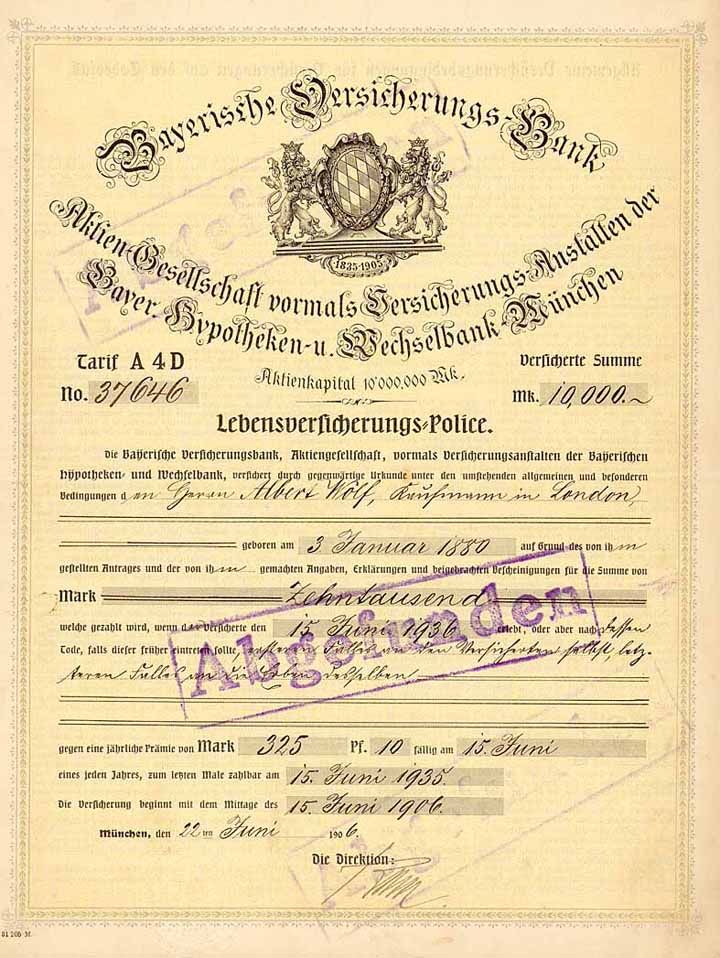 Bayerische Versicherungs-Bank
1835-1905
Aktien-Gesellschaft vormals Versicherungs-Anstalten der
Bayer. Hypotheken- u. Wechselbank-München
Tarif A 4 D
Aktienkapital 10'000,000 Mk.
Versicherte Summe
No. 37646
Mk. 10,000.~
Lebensversicherungs-Police.
Die Bayerische Versicherungsbank, Aktiengesellschaft, vormals Versicherungsanstalten der Bayerischen
Hypotheken- und Wechselbank, versichert durch gegenwärtige Urkunde unter den umstehenden allgemeinen und besonderen
Bedingungen den Herrn Albert Wolf, Kaufmann in London,
geboren am 3. Januar 1880 auf Grund des von ihm
gestellten Antrages und der von ihm gemachten Angaben, Erklärungen und beigebrachten Bescheinigungen für die Summe von
Mark Zehntausend
welche gezahlt wird, wenn der Versicherte den 15. Juni 1936 erlebt, oder aber nach dessen
Tode, falls dieser früher eintreten sollte, ersteren Falles an den Versicherten selbst, letz-
teren Falles an die Erben desselben
Abgefunden
gegen eine jährliche Prämie von Mark 325 Pf. 10 fällig am 15. Juni
eines jeden Jahres, zum letzten Male zahlbar am 15. Juni 1935.
Die Versicherung beginnt mit dem Mittage des 15. Juni 1906.
München, den 22ten Juni 1906.
Die Direktion: